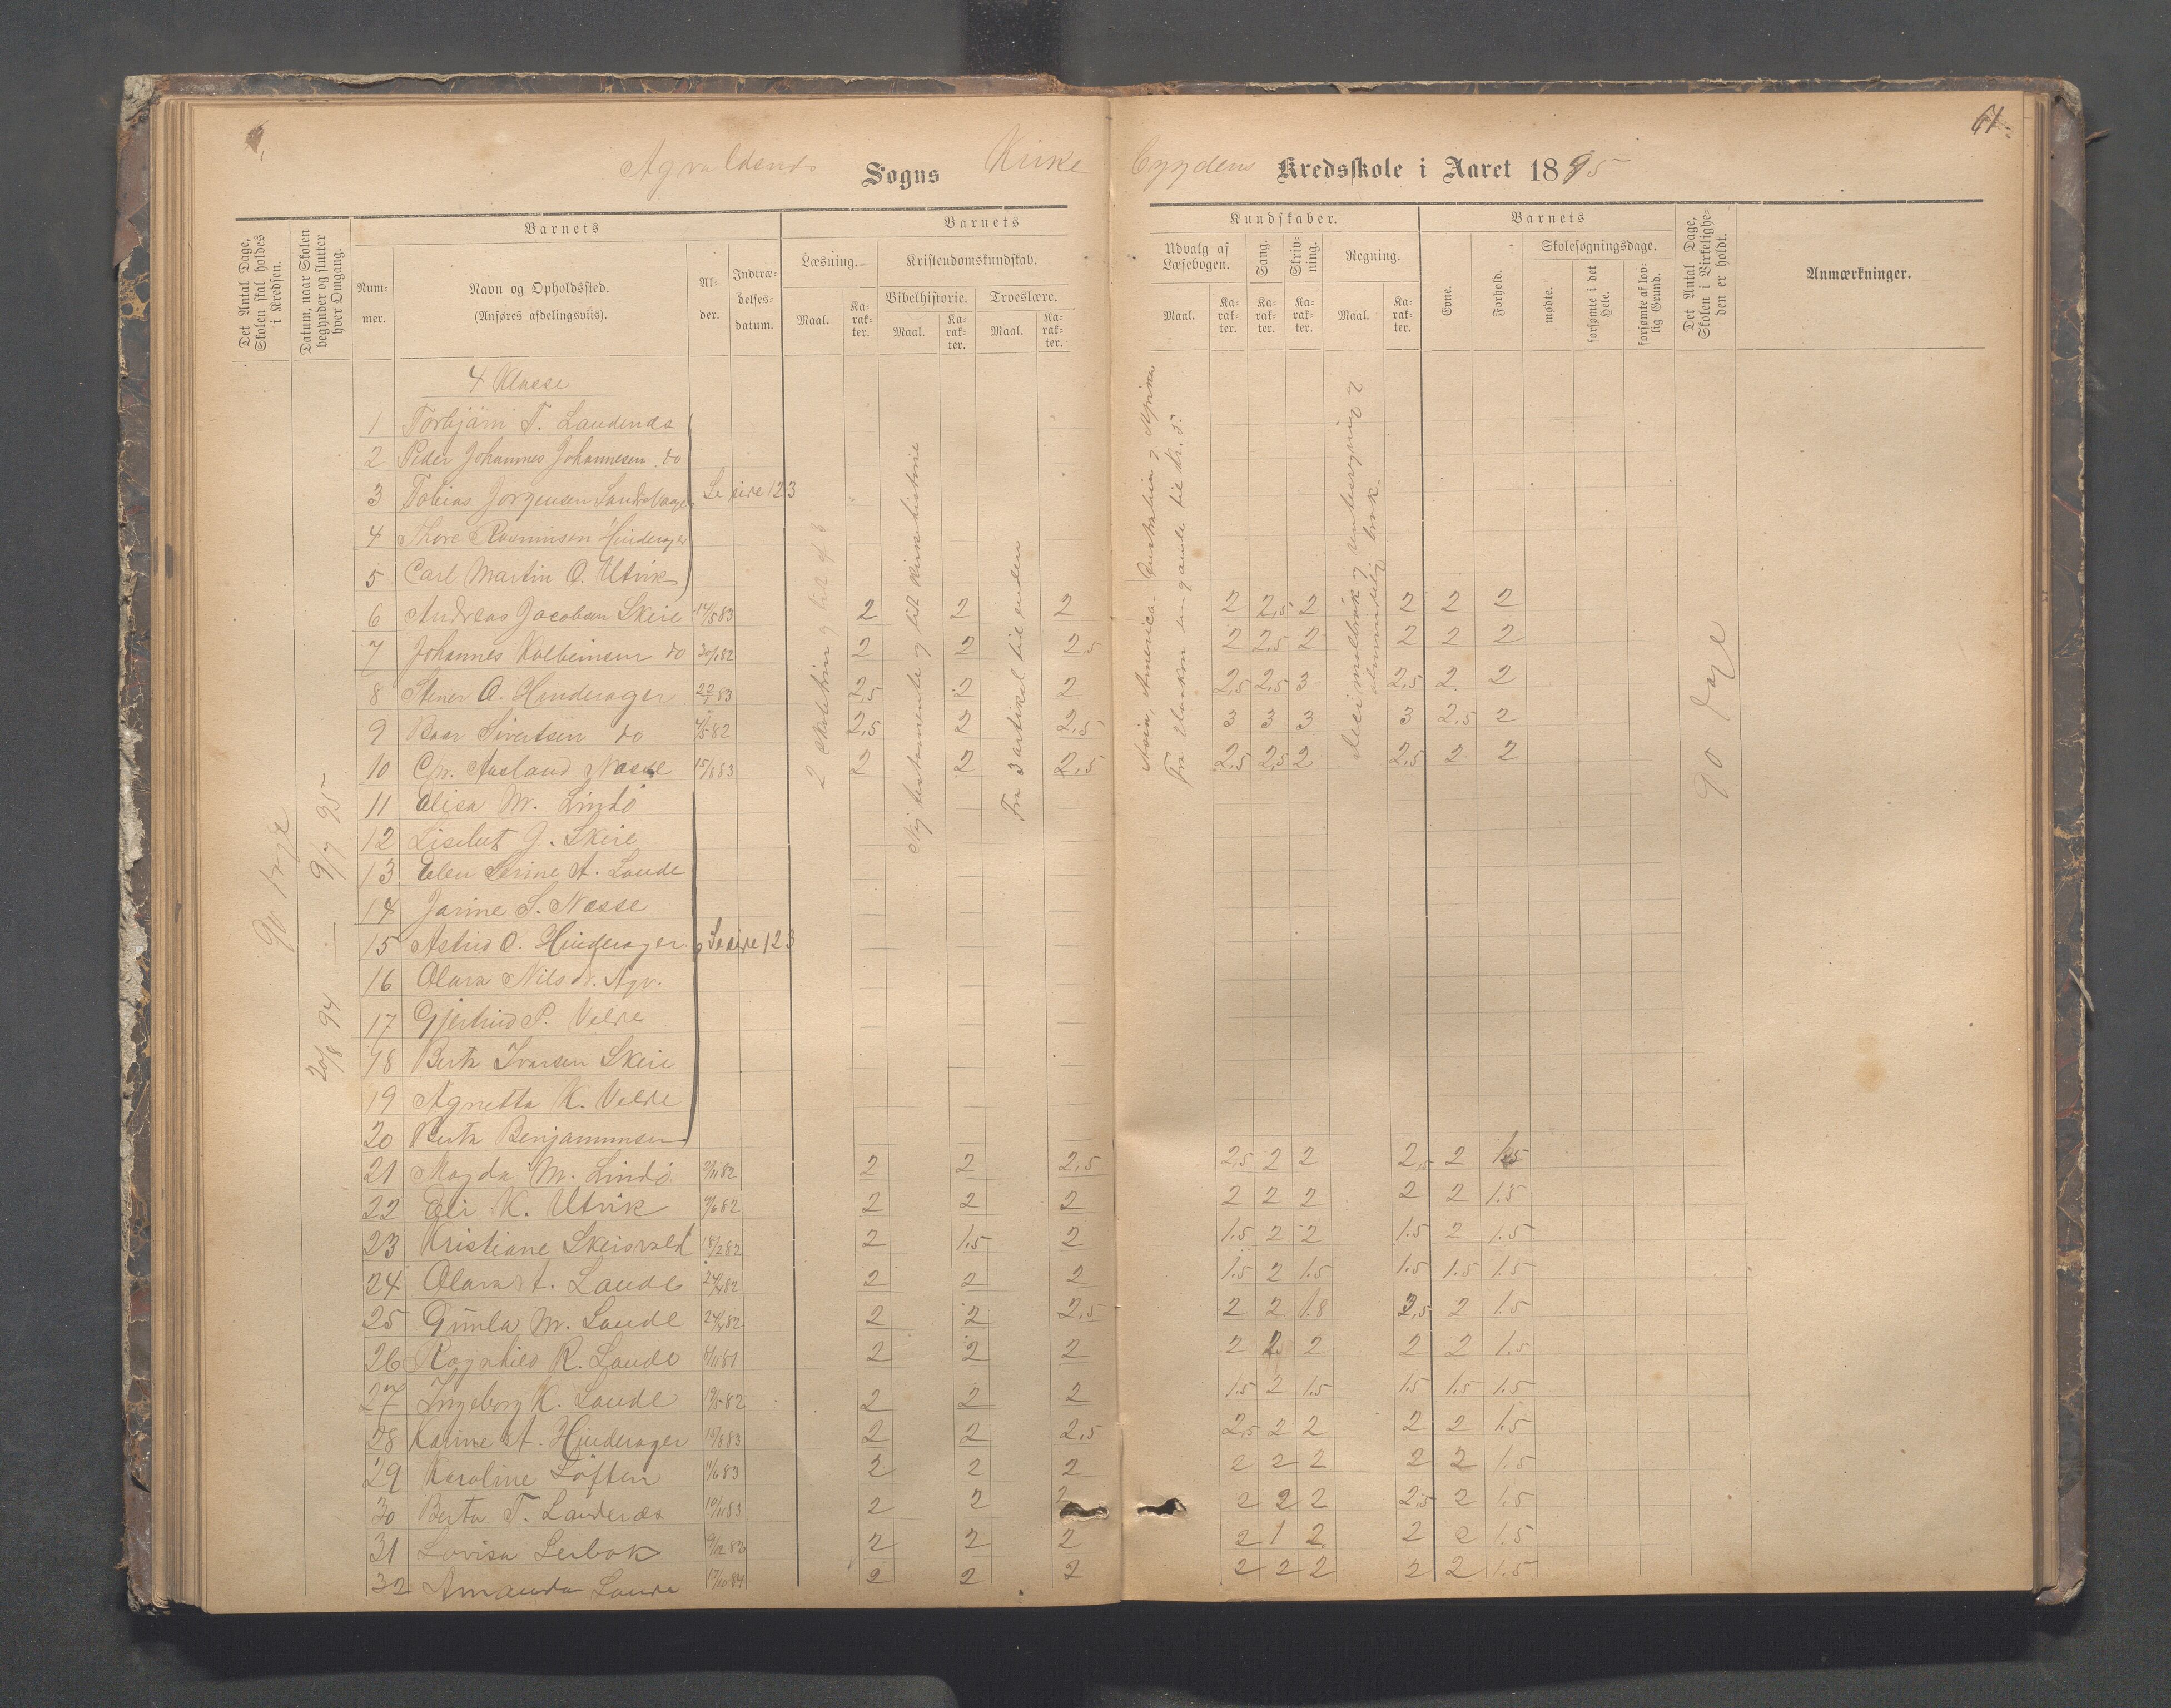 61.
Sogns Kirke Bygdens Kredsskole i Aaret 1895
Det Antal Dage, Skolen skal holdes i Kredsen.
Datum, naar Skolen begynder og slutter hver Omgang.
Barnets
Nummer.
Navn og Opholdssted.
(Anføres afdelingsviis).
Alder.
Indtrædelsesdatum.
Barnets
Læsning.
Maal.
Karakter.
Kristendomskundskab.
Bibelhistorie.
Troeslære.
Maal.
Karakter.
Maal.
Karakter.
Kundskaber.
Udvalg af Læsebogen.
Sang.
Skrivning.
Regning.
Maal.
Karakter.
Karakter.
Karakter.
Maal.
Karakter.
Barnets
Evne.
Forhold.
Skolesøgningsdage.
mødte.
forsømte i det Hele.
forsømte af lovlig Grund.
Det Antal Dage, Skolen i Virkeligheden er holdt.
Anmærkninger.
90 dage
20/8 94 — 9/7 95
Fra 3 artikel til enden
Asia, America, Australien og Afrika
90 dage
4 Klasse
1 Torbjørn T. Landenæs
2 Peder Johannes Johannesen do
3 Tobias Jørgensen Se side 123
4 Thore Rasmusen Hinderager
5 Carl Martin O. Utvik
6 Andreas Jacobsen Skeie 14/5 83 2 2 2 2 2,5 2 2 2 2
7 Johannes Kolbeinsen do 30/1 82 2 2 2,5 2 2,5 2 2 2 2
8 Stener O. Hinderager 22/1 83 2,5 2 2 2,5 2,5 3 2,5 2 2
9 Baar Sivertsen do 4/5 82 2,5 2 2,5 3 3 3 3 2,5 2
10 Chr. Aasland Næsse 15/8 83 2 2 2,5 2,5 2,5 2 2,5 2 2
11 Elisa M. Lindö
12 Liselut J. Skeie
13 Elen Serine A. Lande
14 Jarine S. Næsse
15 Astrid O. Hinderager Se side 123
16 Olara Nilsd. Agv.
17 Gjertrud P. Velde
18 Berta Ivarsen Skeie
19 Agnetta K. Velde
20 Berta Benjaminsen
21 Magda M. Lindö 2/11 82 2 2 2,5 2,5 2 2 2,5 2 1.5
22 Eli K. Utvik 9/6 82 2 2 2 2 2 2 2 2 1.5
23 Kristiane Skeisvold 18/2 82 2 1.5 2 1.5 2 2 1.5 2 1.5
24 Olava A. Lande 24/4 82 2 2 2 1.5 2 1.5 1.5 1.5 1.5
25 Gunla M. Lande 24/4 82 2 2 2,5 2 2 1.8 2,5 2 1.5
26 Ragnhild R. Lande 6/11 81 2 2 2 2 2 2 2 2 1.5
27 Ingeborg K. Lande 19/5 82 2 2 2 1.5 2 1.5 1.5 1.5 1.5
28 Karine A. Hinderager 15/8 83 2 2 2,5 2,5 2 2 2 2 1.5
29 Karoline Loften 11/6 83 2 2 2 2 2 2 2 2 1.5
30 Berta T. Landenæs 10/11 83 2 2 2 2 2 2 2.5 2 1.5
31 Lovisa Lerbak 9/12 82 2 2 2 2 1 2 2 2 1.5
32 Amanda Lande 17/10 84 2 2 2 2 2 2 2 2 1.5